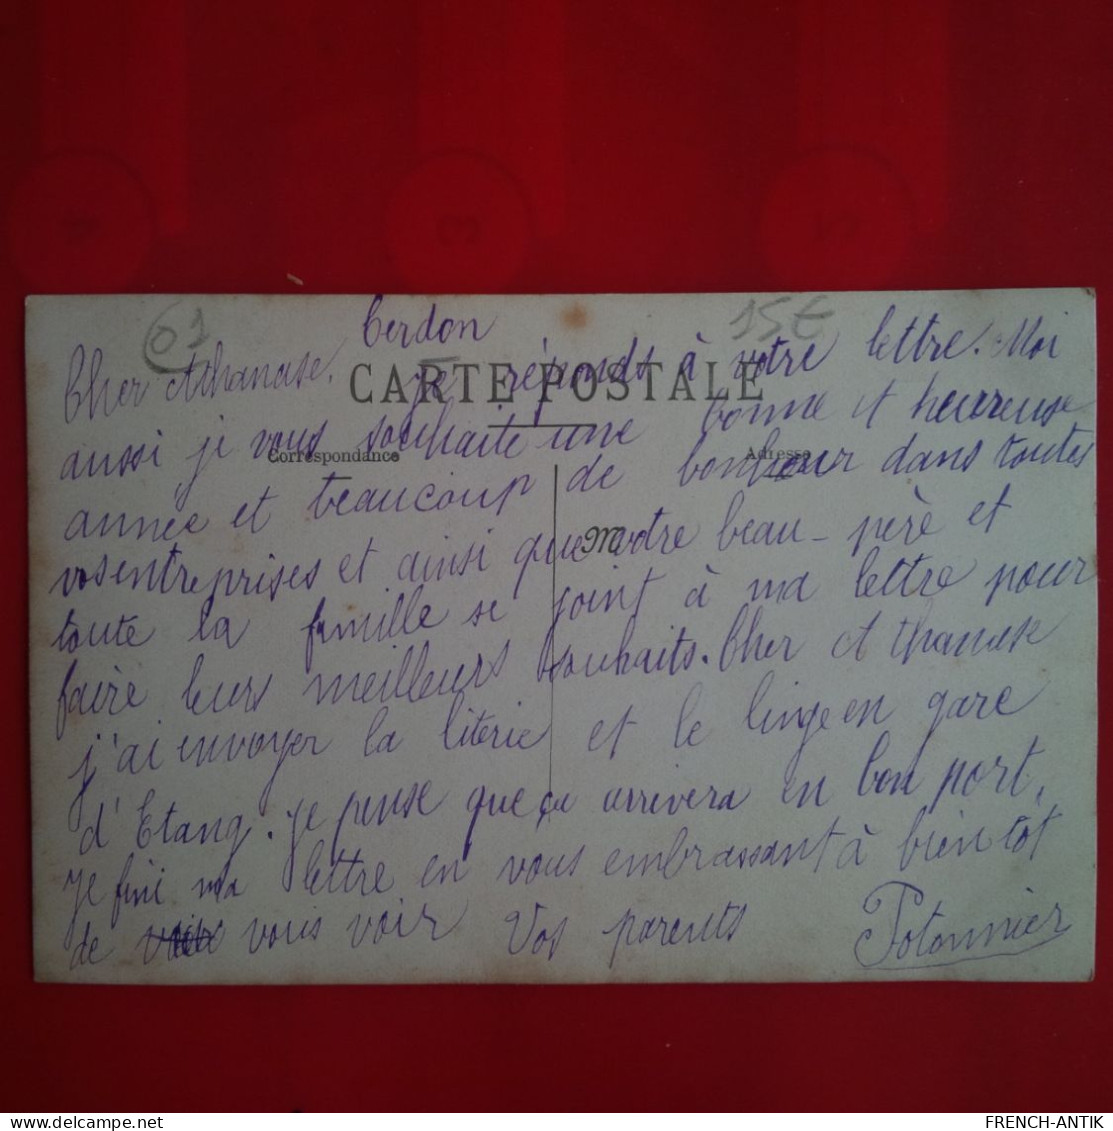 01
15€
Cerdon
CARTE POSTALE
Correspondance
Adresse
M
Cher Athanase, je réponds à votre lettre. Moi
aussi je vous souhaite une bonne et heureuse
année et beaucoup de bonheur dans toutes
vos entreprises et ainsi que votre beau-père et
toute la famille se joint à ma lettre pour
faire leurs meilleurs souhaits. Cher Athanase
j'ai envoyer la literie et le linge en gare
d'Etang. je pense que ça arrivera en bon port,
je fini ma lettre en vous embrassant à bientot
de vous voir Vos parents Potonnier
FRENCH-ANTIK